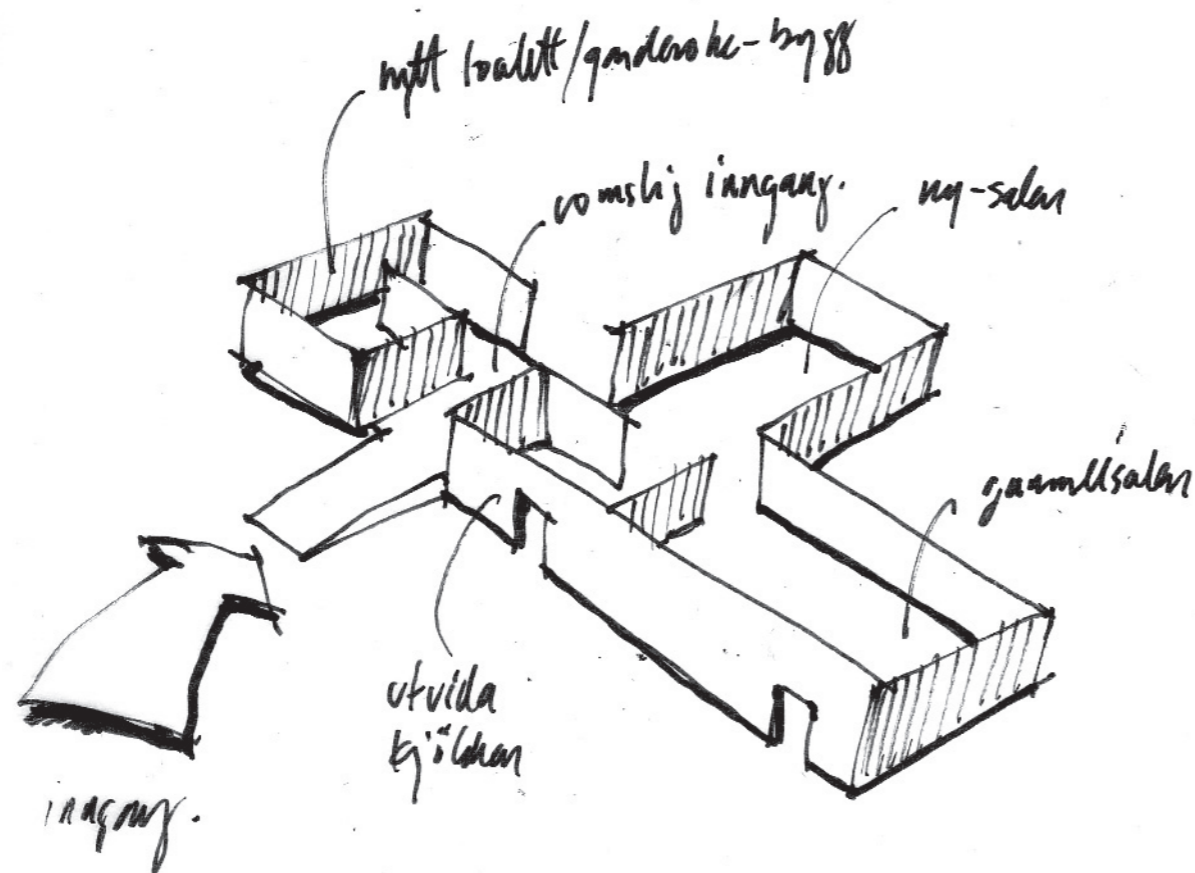 nytt toalett/garderobe-bygg
romslig inngang.
ny-salen
gammelsalen
utvida
kjökken
inngang.